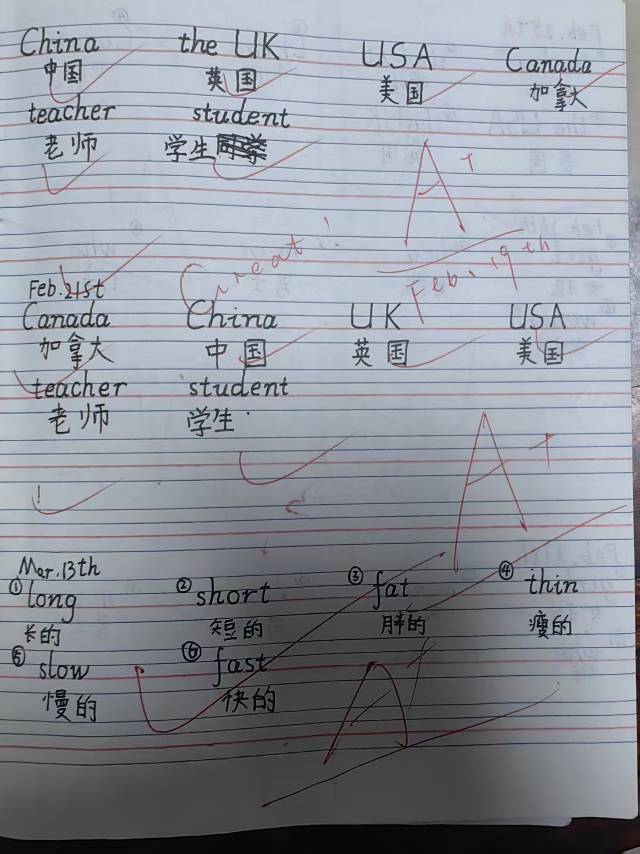 China the UK USA Canada
中国 英国 美国 加拿大
teacher student
老师 学生
A+
Great! Feb. 19th
Feb. 21st
Canada China UK USA
加拿大 中国 英国 美国
teacher student
老师 学生.
A+
Mar. 13th
① long ② short ③ fat ④ thin
长的 短的 胖的 瘦的
⑤ slow ⑥ fast
慢的 快的
A+